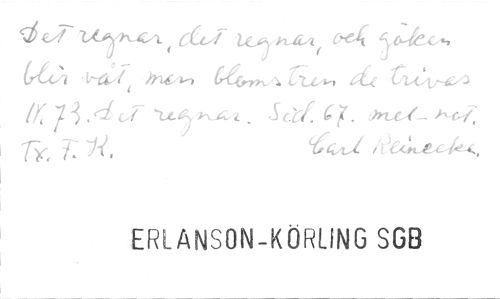 Det regnar, det regnar, och göken
blir våt, men blomstren de trivas
N. 73. Det regnar. Sid. 67. mel-not.
Tx. F. K. Carl Reinecke.
ERLANSON-KÖRLING SGB